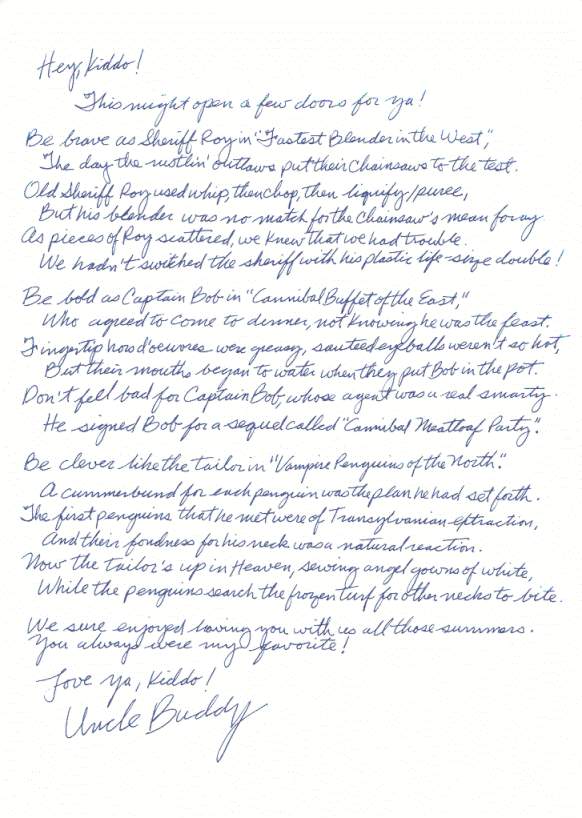 Hey, Kiddo!
This might open a few doors for ya!
Be brave as Sheriff Roy in "Fastest Blender in the West,"
The day the rustlin' outlaws put their chainsaws to the test.
Old Sheriff Roy used whip, then chop, then liquify/puree,
But his blender was no match for the chainsaw's mean foray
As pieces of Roy scattered, we knew that we had trouble.
We hadn't switched the sheriff with his plastic life-size double!
Be bold as Captain Bob in "Cannibal Buffet of the East,"
Who agreed to come to dinner, not knowing he was the feast.
Fingertip hors d'oeuvres were greasy, sauteed eyeballs weren't so hot,
But their mouths began to water when they put Bob in the pot.
Don't fell bad for Captain Bob, whose agent was a real smarty.
He signed Bob for a sequel called "Cannibal Meatloaf Party".
Be clever like the tailor in "Vampire Penguins of the North."
A cummerbund for each penguin was the plan he had set forth.
The first penguins that he met were of Transylvanian extraction,
And their fondness for his neck was a natural reaction.
Now the tailor's up in Heaven, sewing angel gowns of white,
While the penguins search the frozen turf for other necks to bite.
We sure enjoyed having you with us all those summers.
You always were my favorite!
Love ya, Kiddo!
Uncle Buddy